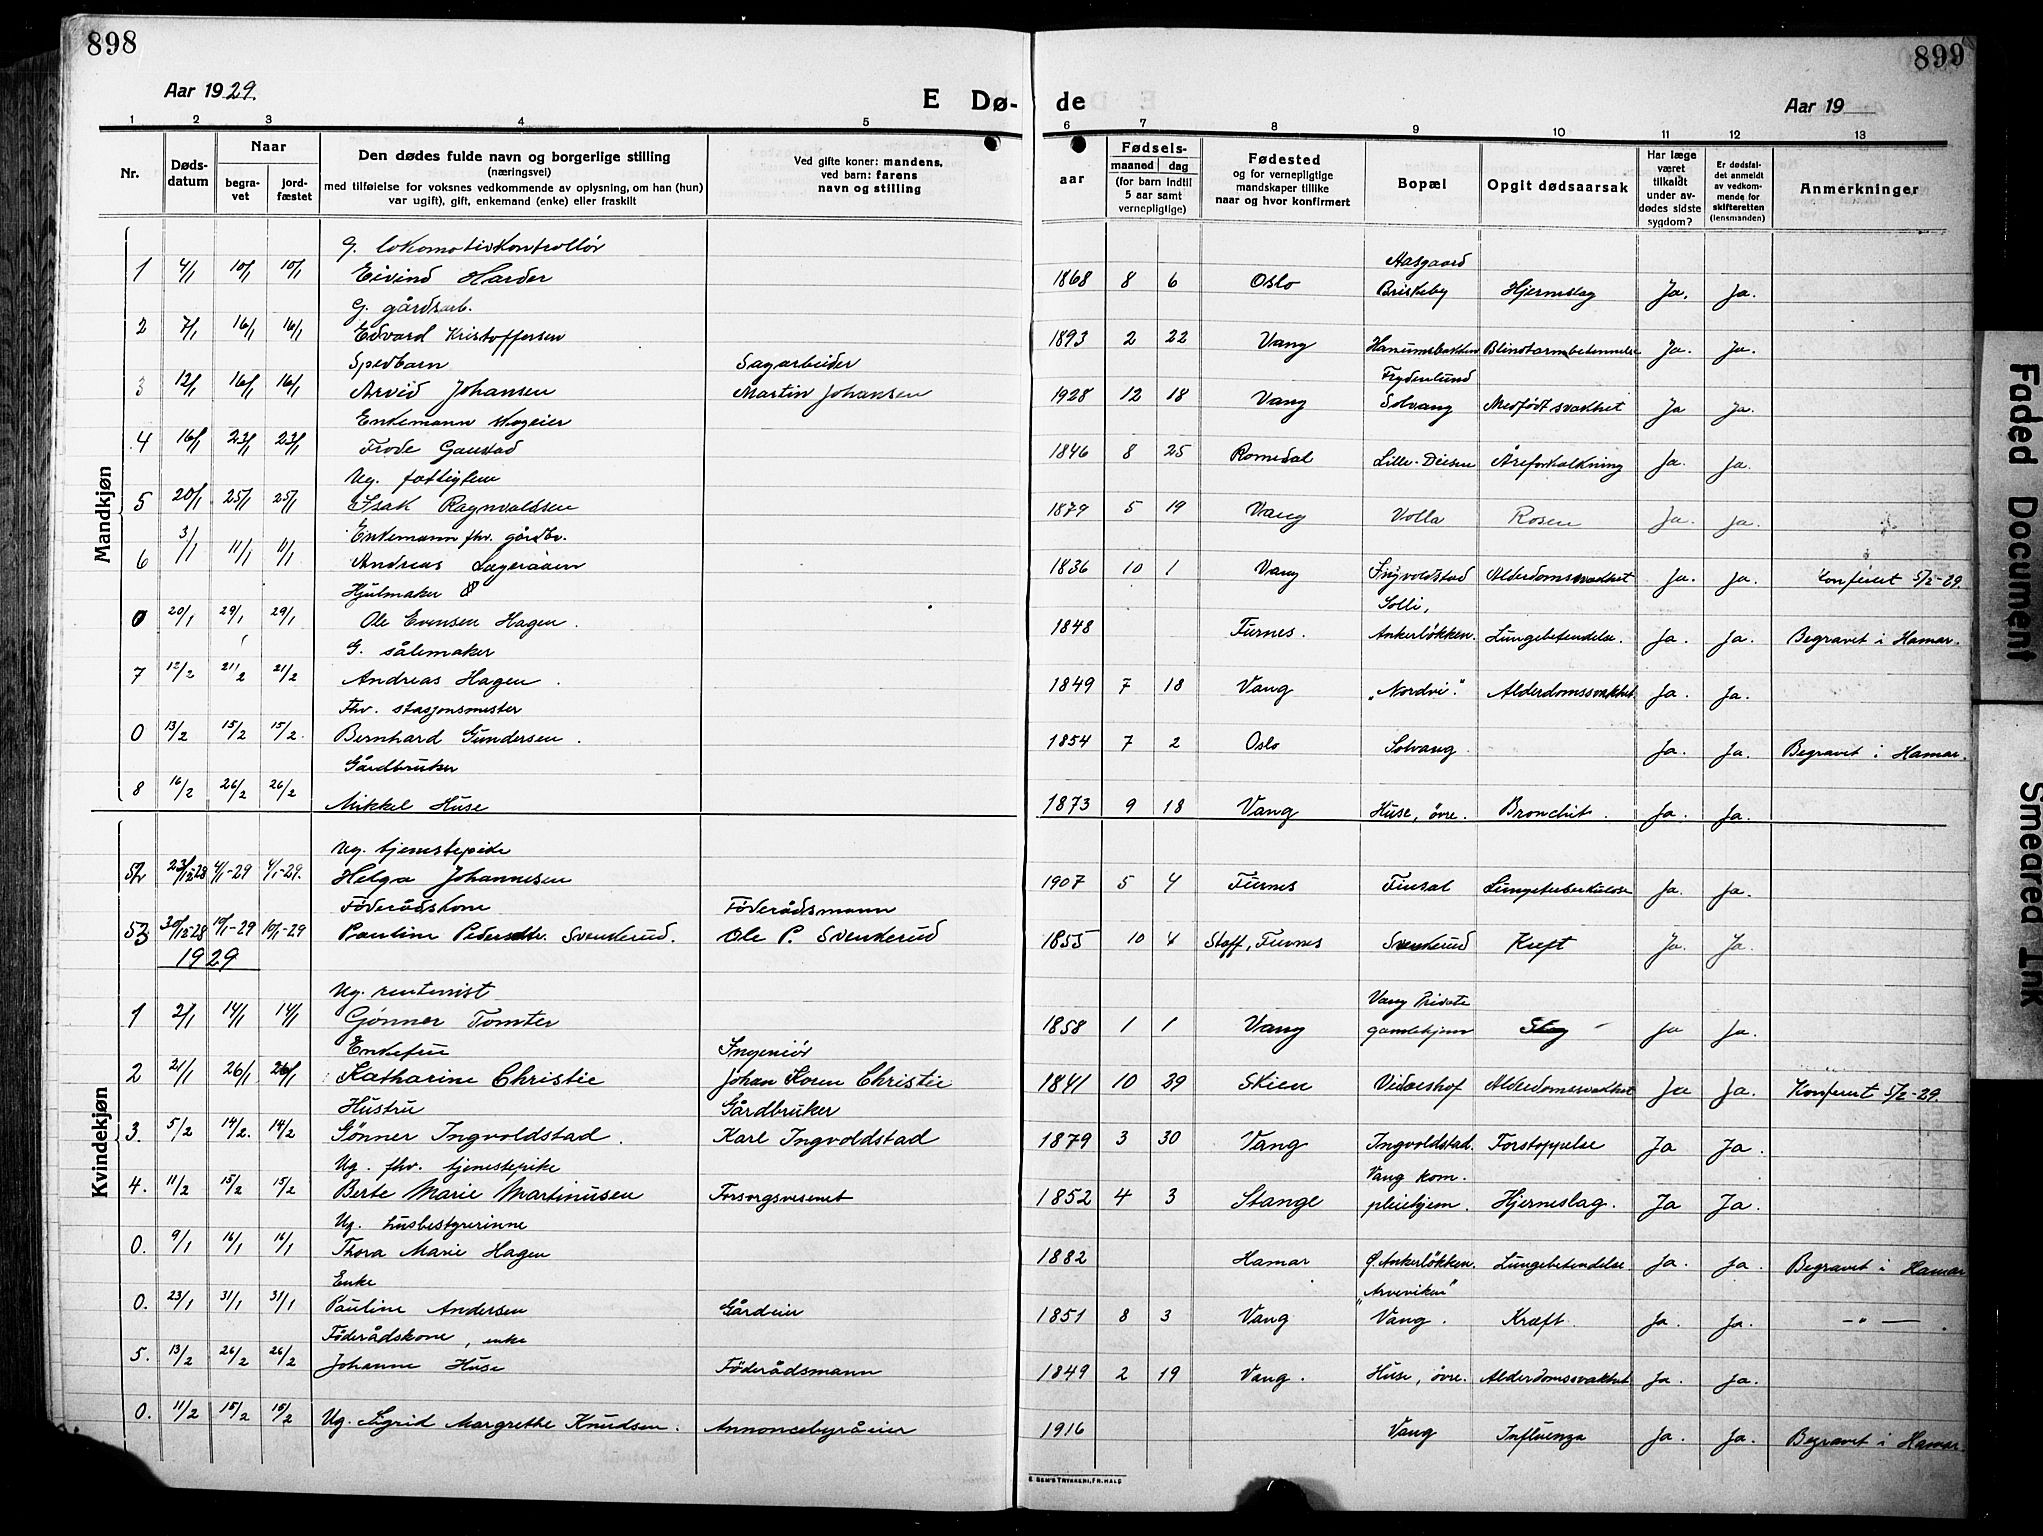 898
899
Aar 1929.
E Dø-
de
Aar 19
1 2 3 4 5 6 7 8 9 10 11 12 13
Nr.
Døds-
datum
Naar
begra-
vet
jord-
fæstet
Den dødes fulde navn og borgerlige stilling
(næringsvei)
med tilføielse for voksnes vedkommende av oplysning, om han (hun)
var ugift), gift, enkemand (enke) eller fraskilt
Ved gifte koner: mandens,
ved barn: farens
navn og stilling
Fødsels-
aar
maaned dag
(for barn indtil
5 aar samt
vernepligtige)
Fødested
og for vernepligtige
mandskaper tillike
naar og hvor konfirmert
Bopæl
Opgit dødsaarsak
Har læge
været
tilkaldt
under av-
dødes sidste
sygdom?
Er dødsfal-
det anmeldt
av vedkom-
mende for
skifteretten
(lensmanden)
Anmerkninger
Mandkjøn
G. lokomotivkontrollør Aasgaard
1 4/1 10/1 10/1 Eivind Harder 1868 8 6 Oslo Briskeby Hjerneslag Ja. Ja.
G. gårdsarb.
2 7/1 16/1 16/1 Edvard Kristoffersen 1893 2 22 Vang Hanumsbakken Blindtarmbetennelse Ja. Ja.
Spedbarn Sagarbeider Frydenlund
3 12/1 16/1 16/1 Arvid Johansen Martin Johansen 1928 12 18 Vang Solvang Medfødt svakhet Ja Ja.
Enkemann
4 16/1 23/1 23/1 Frode Gaustad 1846 8 25 Romedal Lille-Deisen Åreforkalkning Ja. Ja.
Ug. fattiglem
5 20/1 25/1 25/1 Isak Ragnvaldsen 1879 5 19 Vang Volla Rosen Ja. Ja.
Enkemann fhv. gårdbr.
6 3/1 11/1 11/1 Andreas 1836 10 1 Vang Ingvoldstad Alderdomssvakhet Ja. Ja. Konferert 5/2-29.
Hjulmaker Solli,
0 20/1 29/1 29/1 Ole Evensen Hagen. 1848 Furnes. Ankerløkken. Lungebetendelse. Ja. Ja. Begravet i Hamar.
G. sålemaker
7 12/2 21/2 21/2 Andreas Hagen. 1849 7 18 Vang „Nordvi." Alderdomssvakhet Ja. Ja.
Fhv. stasjonsmester
0 13/2 15/2 15/2. Bernhard Gundersen. 1854 7 2 Oslo Solvang Ja. Ja. Begravet i Hamar.
Gårdbruker
8 16/2 26/2 26/2 Mikkel Huse 1873 9 18 Vang Huse, övre. Bronchit. Ja. Ja.
Kvindekjøn
Ug. tjenestepike
52 23/12-28 4/1-29 4/1-29. Helga Johannesen 1907 5 4 Furnes Fuusal Lungetuberkulose Ja. Ja.
Föderådskone Föderådsmann
53 30/12-28 10/1-29 10/1-29 Pauline Pedersdtr. Svenkerud. Ole P. Svenkerud 1855 10 4 Stoff, Furnes Svenkerud Kreft Ja. Ja.
1929
Ug. rentenist Vang Private
1 2/1 14/1 14/1 Gjønner Tomter 1858 1 1 Vang gamlehjem Slag Ja Ja.
Enkefru Ingeniör
2 21/1 26/1 26/1 Katharine Christie Johan Koren Christie 1841 10 29 Skien Vidarshof Alderdomssvakhet Ja Ja. Konferert 5/2-29.
Hustru Gårdbruker
3. 5/2 14/2. 14/2 Gønner Ingvoldstad. Karl Ingvoldstad 1879 3 30 Vang Ingvoldstad. Forstoppelse Ja Ja.
Ug. fhv. tjenestepike Vang kom.
4. 11/2 15/2 15/2 Berte Marie Martinusen Forsorgsvesenet 1852 4 3 Stange pleiehjem. Hjerneslag. Ja Ja.
Ug. husbestyrerinne
0. 9/1 16/1 16/1 Thora Marie Hagen 1882 Hamar Ø. Ankerløkken. Lungebetendelse Ja. Ja. Begravet i Hamar
Enke „Arveviken"
0. 23/1 31/1 31/1 Pauline Andersen Gårdeier 1851 8 3 Vang Vang. Kræft. Ja. Ja. -"-.
Föderådskone, enke
5. 13/2 26/2 26/2 Johanne Huse Föderådsmann 1849 2 19 Vang. Huse, övre. Alderdomssvakhet Ja. Ja.
0. 11/2 15/2 15/2 Ug. Sigrid Margrethe Knudsen. Annoncebyråeier 1916 Vang Influenza Ja. Ja. Begravet i Hamar.
E. SEM'S TRYKKERI, FR.HALD
Faded Document
Smeared Ink